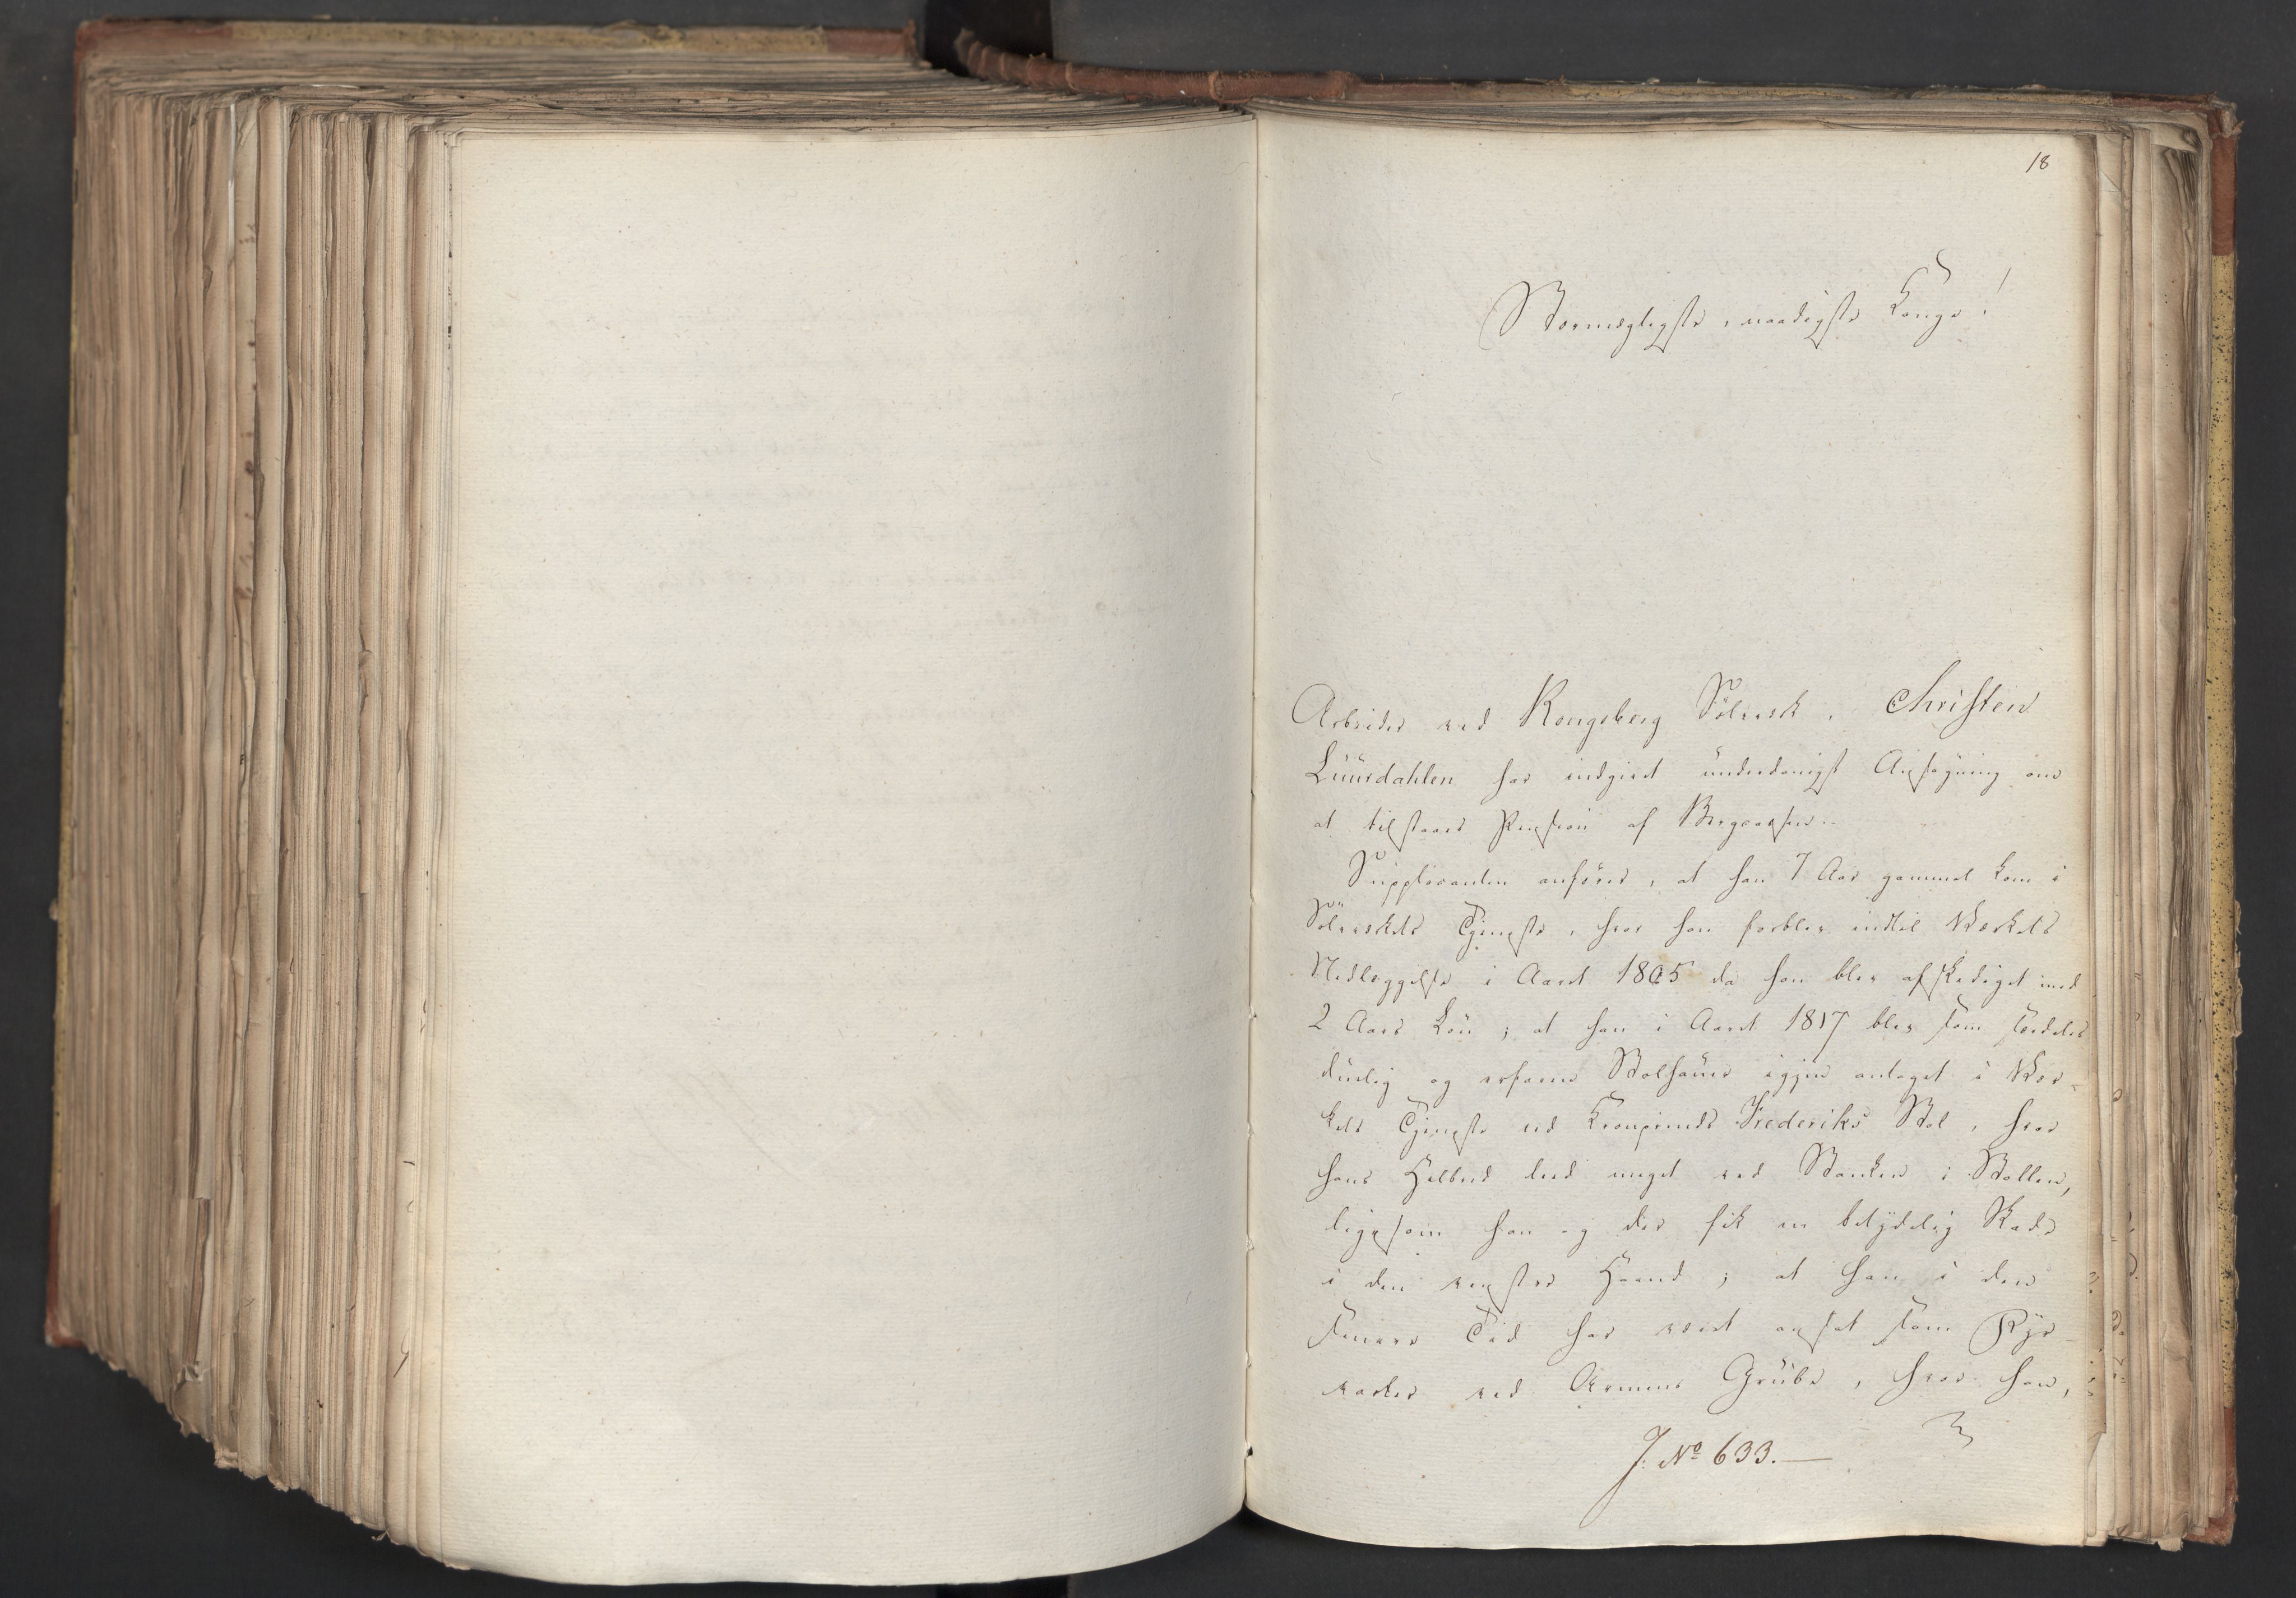 18
Stormægtigste, naadigste Konge!
Arbeider ved Kongsberg Sölverk, Christen
Luursdahlen har indgivet underdanigst Ansøgning om
at tilstaaes Pension af Bergcassen.
Supplicanten anförer, at han 7 Aar gammel kom i
Sölverkets Tjeneste, hvor han forblev indtil Værkets
Nedlæggelse i Aaret 1805 da han blev afskediget med
2 Aars Lön; at han i Aaret 1817 blev som særdeles
duelig og erfaren Stolhauer igjen antaget i Vær-
kets Tjeneste ved Kronprinds Frederiks Stol, hvor
hans Helbred leed meget ved Stanken i Stollen,
ligesom han og der fik en betydelig Skade
i den venstre Haand; at han i den
senere Tid har været ansat som Rys-
vasker ved Armens Grube, hvor han,
J. No 633.—